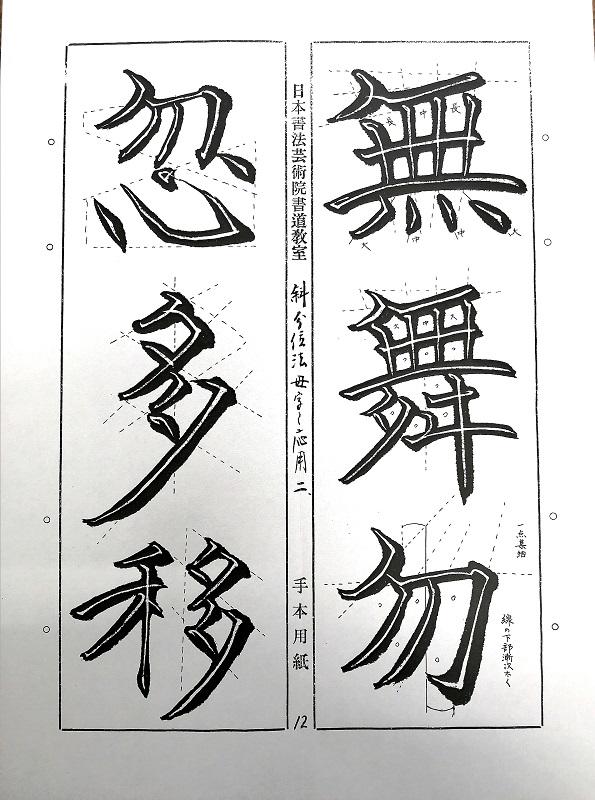 無舞勿
長 中 長
大 中 中 大
大 中 大
一点集結
線の下部漸次太く
日本書法芸術院書道教室
斜分位法母字之応用二、
手本用紙
12
忽多移